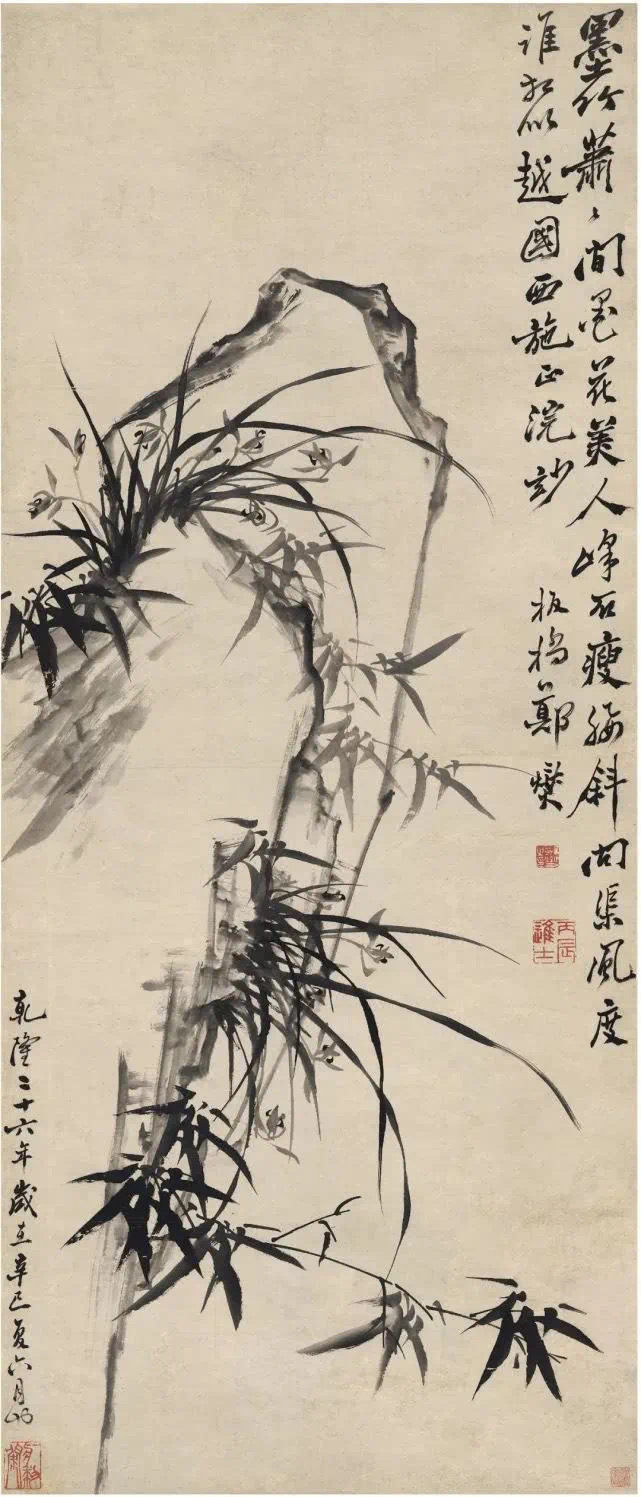 墨竹蕭〻間墨花美人峰石瘦腰斜問渠風度
誰相似越國西施正浣紗
板橋鄭燮
丙辰進士
乾隆二十六年歲在辛巳夏六月